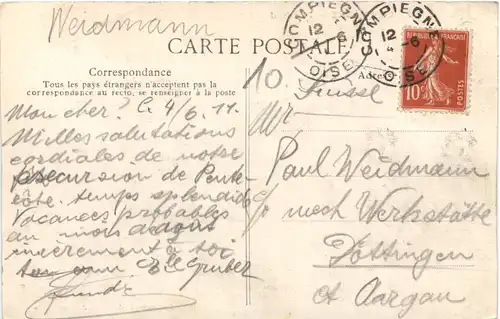 Weidmann
CARTE POSTALE
Correspondance
Tous les pays étrangers n'acceptent pas la
correspondance au recto, se renseigner à la poste
Mon cher! C. 4/6.11.
Milles salutations
cordiales de notre
excursion de Pente-
côte. temps splendide
Vacances probables
au mois d'août
sincèrement à toi
ton E. Gruber
COMPIEGNE
12
6
OISE
COMPIEGNE
12
6
OISE
REPUBLIQUE FRANÇAISE
10c
POSTES
Adresse
10. Suisse
Mr.
Paul Weidmann
mech Werkstätte
Döttingen
Ct Aargau